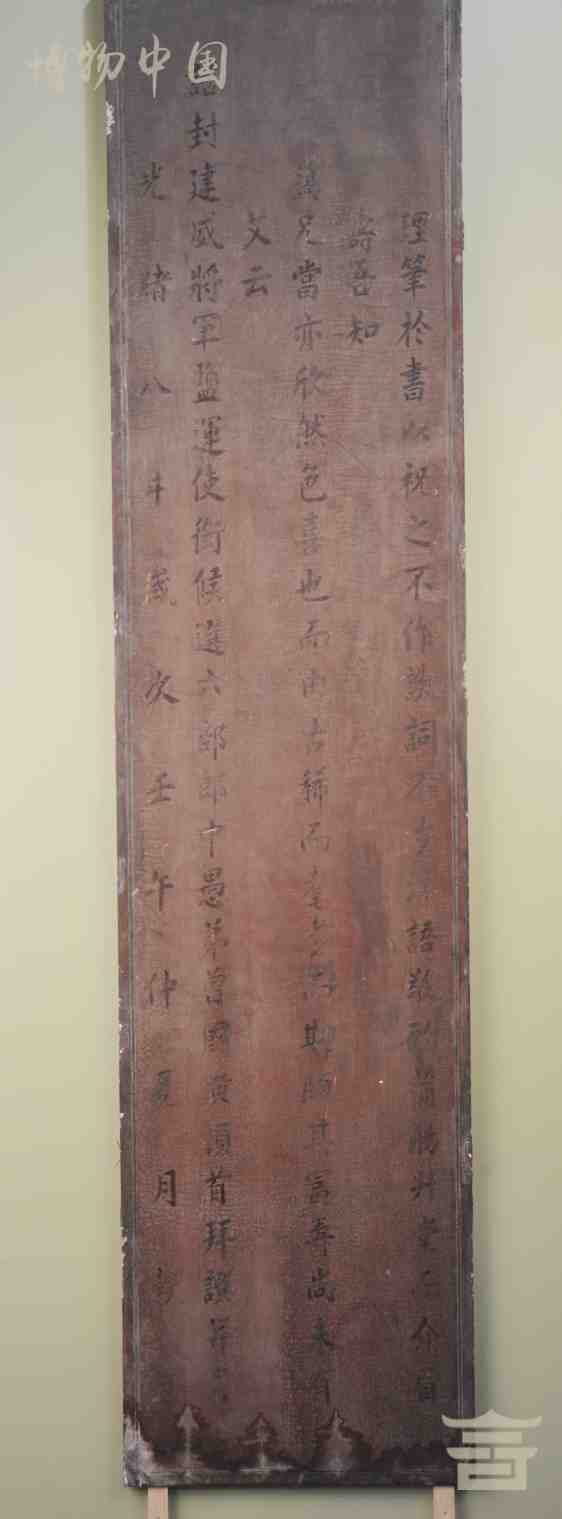 博物中国
理筆於書以祝之不作諛詞不語敬介眉
壽吾知
兄當亦欣然色喜也而由古稀而耄期頤其富壽尚未有
艾云
封建威將軍鹽運使銜候選六部郎中愚弟曾國頓首拜撰并
光緒八年歲次壬午仲夏月